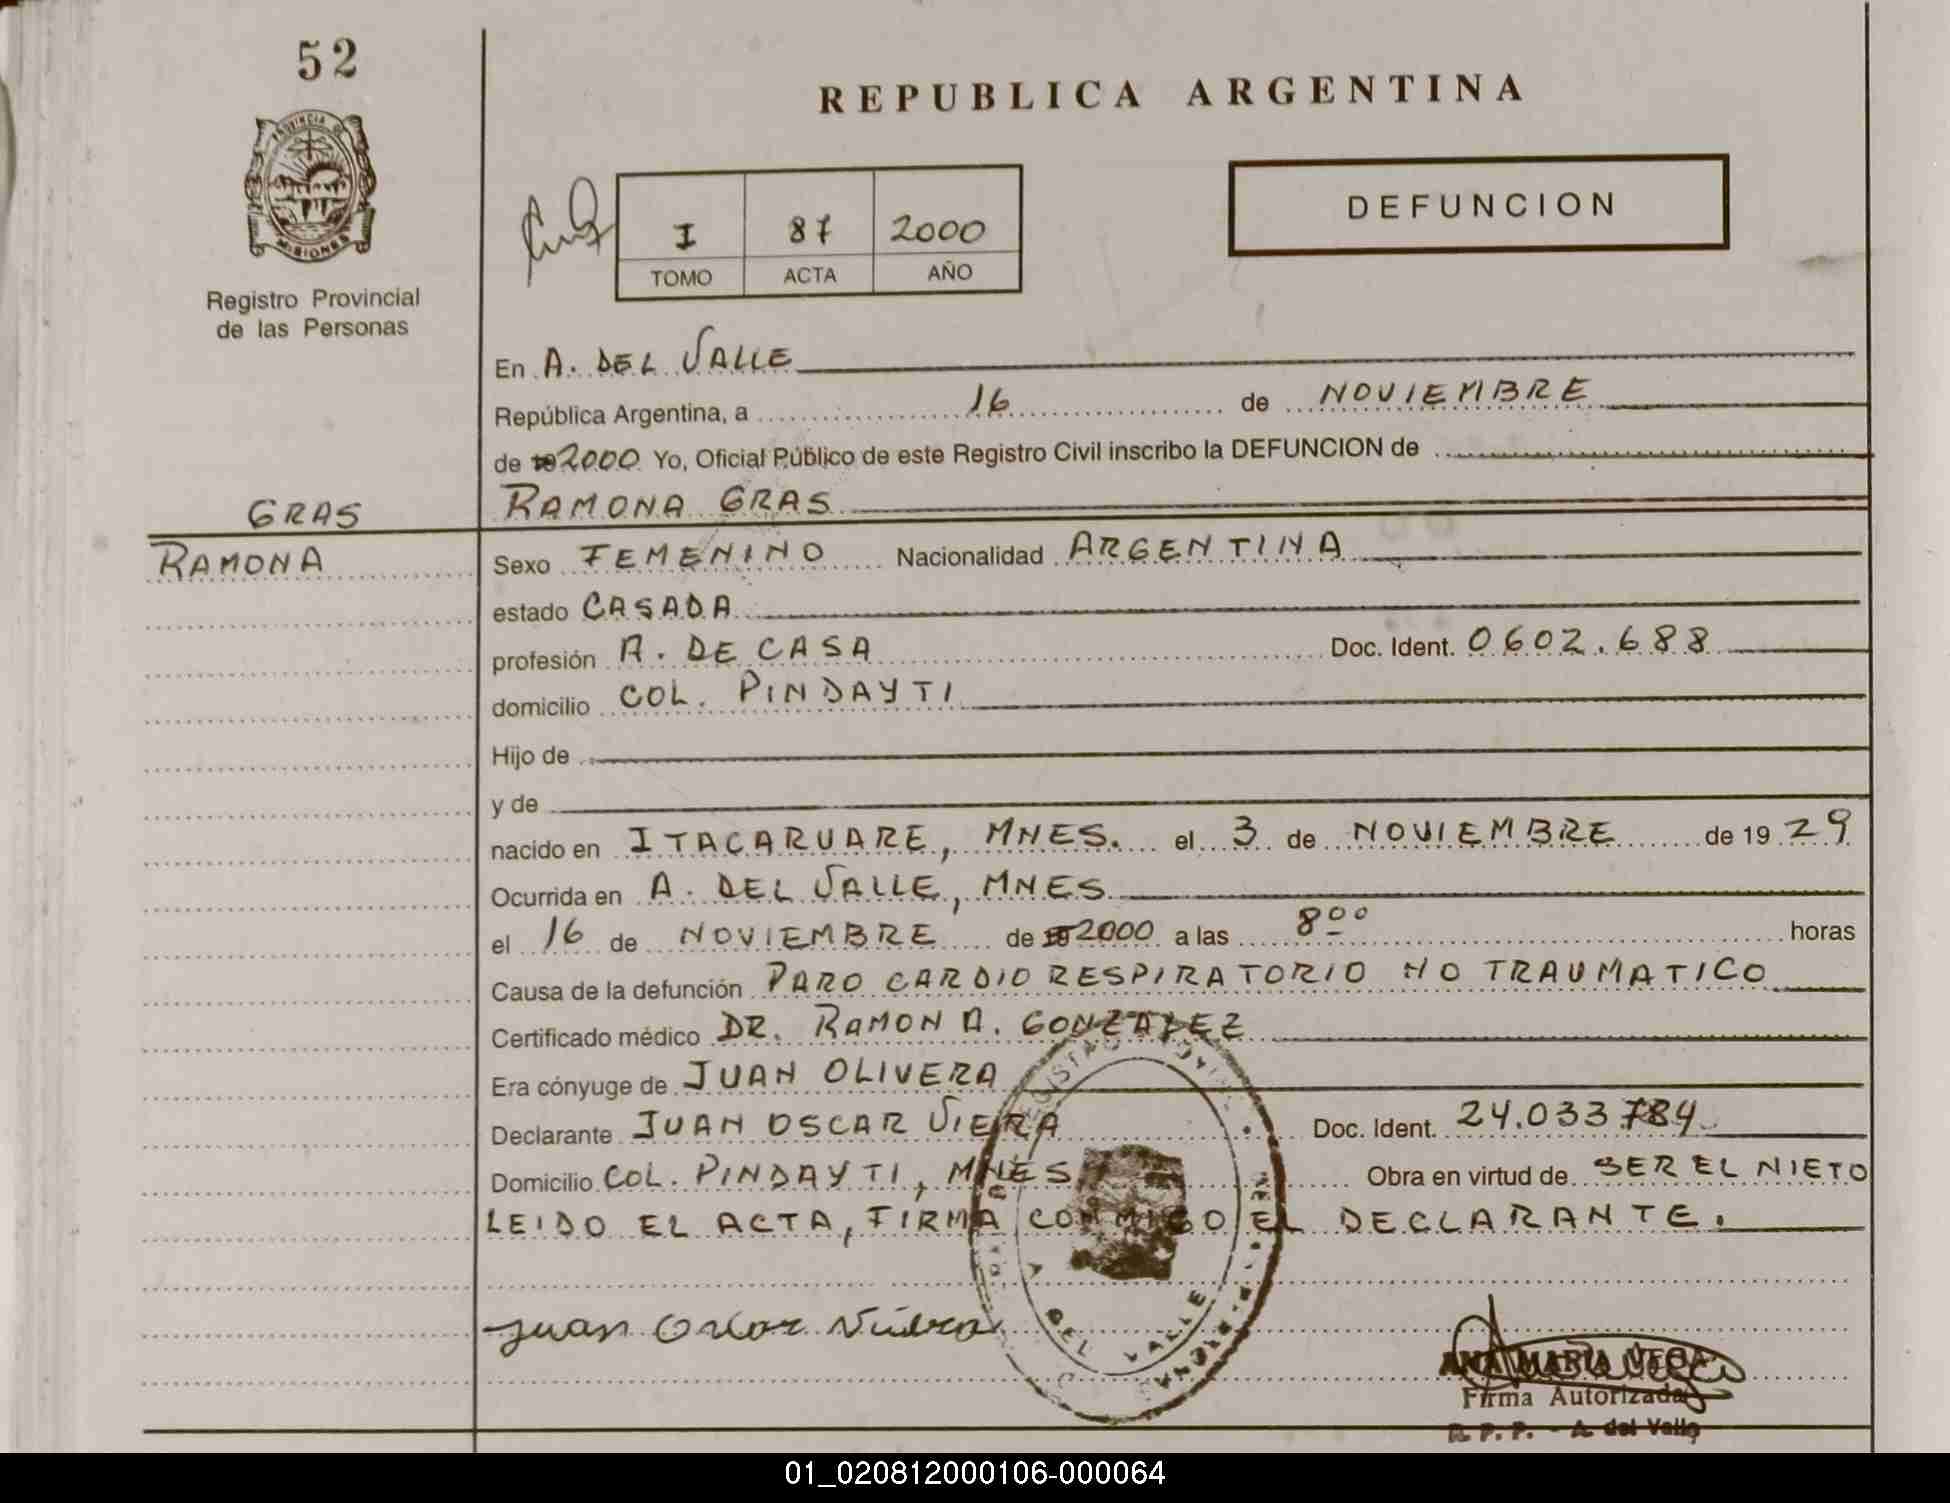 52
REPUBLICA ARGENTINA
PROVINCIA DE
MISIONES
I 87 2000
TOMO ACTA AÑO
DEFUNCION
Registro Provincial
de las Personas
En A. DEL VALLE
República Argentina, a 16 de NOVIEMBRE
de 2000 Yo, Oficial Público de este Registro Civil inscribo la DEFUNCION de
GRAS
RAMONA GRAS
RAMONA
Sexo FEMENINO Nacionalidad ARGENTINA
estado CASADA
profesión A. DE CASA Doc. Ident. 0602.688
domicilio COL. PINDAYTI
Hijo de
y de
nacido en ITACARUARE, MNES. el 3 de NOVIEMBRE de 19 29
Ocurrida en A. DEL VALLE, MNES
el 16 de NOVIEMBRE de 2000 a las 8°° horas
Causa de la defunción PARO CARDIO RESPIRATORIO NO TRAUMATICO
Certificado médico DR. RAMON A. GONZALEZ
Era cónyuge de JUAN OLIVERA
Declarante JUAN OSCAR VIERA Doc. Ident. 24.033.784
Domicilio COL. PINDAYTI, MNES Obra en virtud de SER EL NIETO
LEIDO EL ACTA, FIRMA CONMIGO EL DECLARANTE.
A DEL VALLE
Juan Oscar Viera
ANA MARIA VEGA
Firma Autorizada
R. P. P. - A. del Valle
01_020812000106-000064